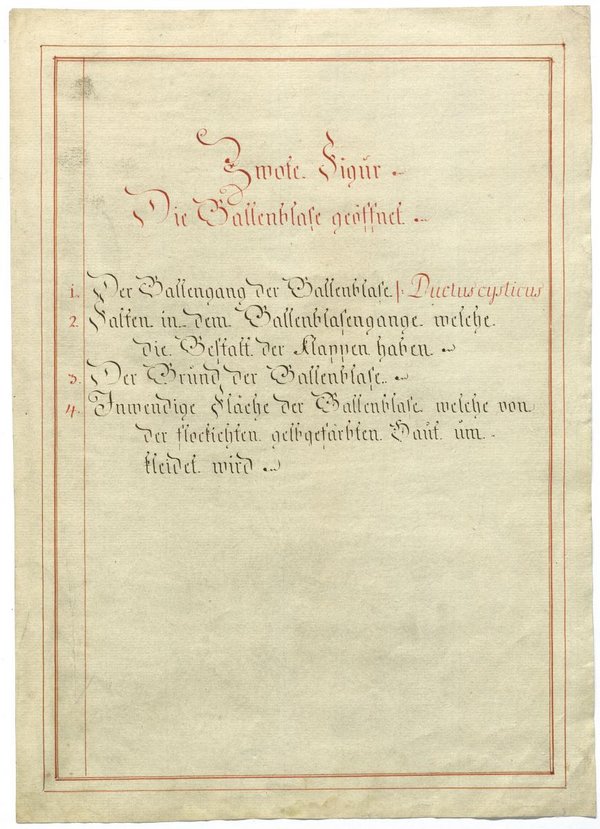 Zwote. Figur.
Die Gallenblase geöffnet.
1. Der Gallengang der Gallenblase /. Ductus cysticus
2. Falten in dem Gallenblasengange welche.
die Gestalt der Klappen haben.
3. Der Grund der Gallenblase.
4. Inwendige Fläche der Gallenblase welche von
der flockichten gelbgefärbten Haut um-
kleidet wird.